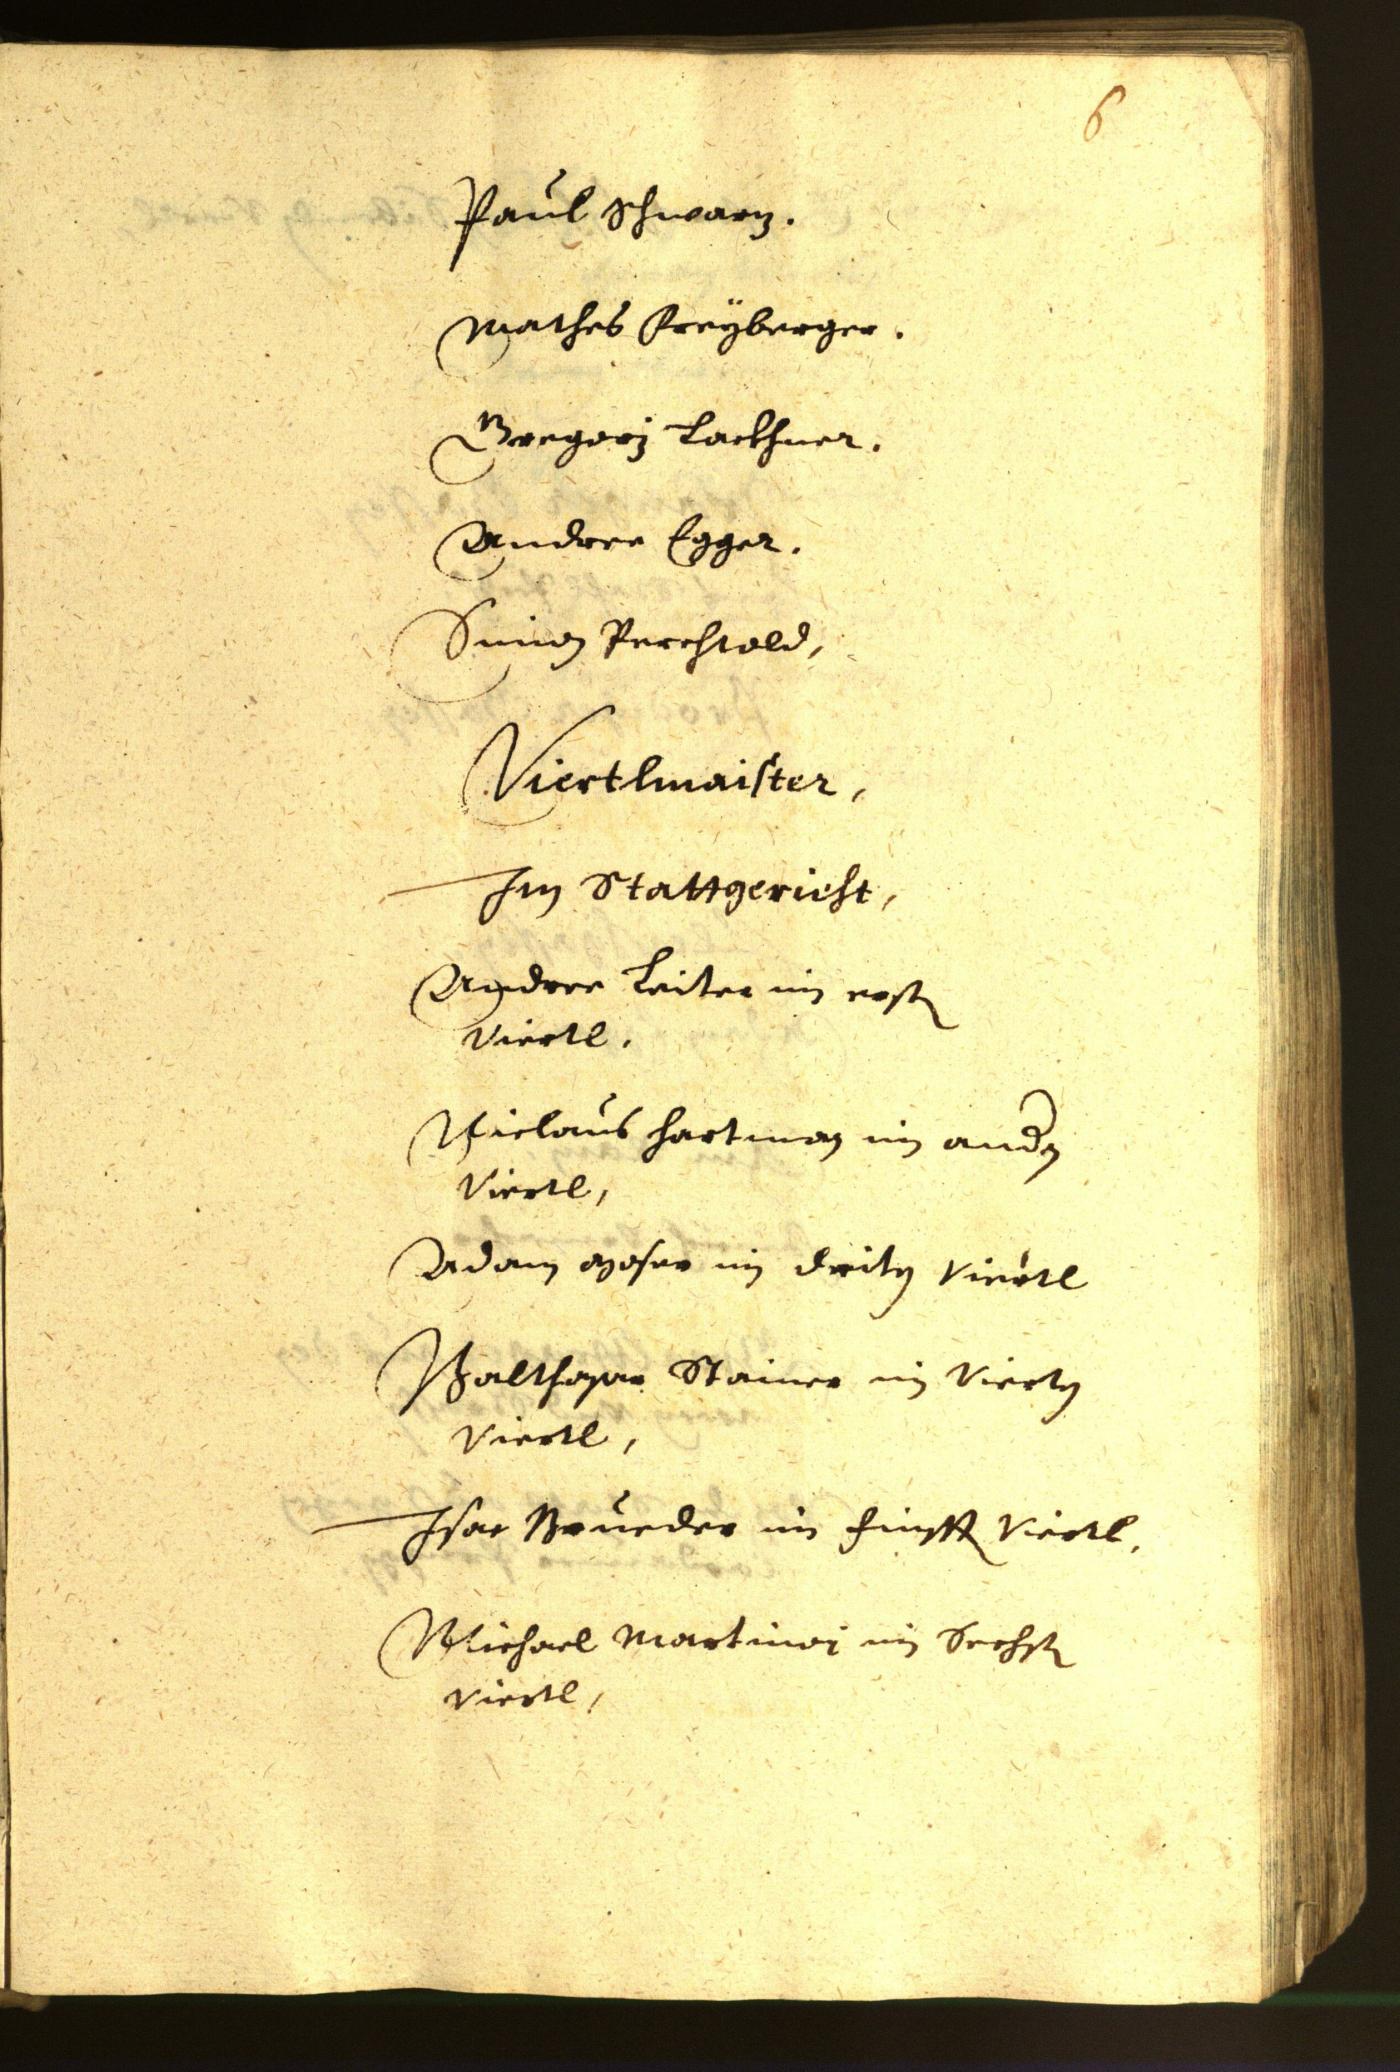 6
Paul Schwarz.
Mathes Freÿberger.
Gregorj Lackhner.
Andree Egger.
Simon Perchtold,
Viertlmaister,
Im Stattgericht,
Andree Leiter im erstn
Viertl.
Niclaus Hartman im andern
Viertl,
Adam Moser im dritn Viertl
Balthasar Stainer im Viertn
Viertl,
Isac Brueder im finfftn Viertl.
Michael Martinoi im Sechstn
Viertl,